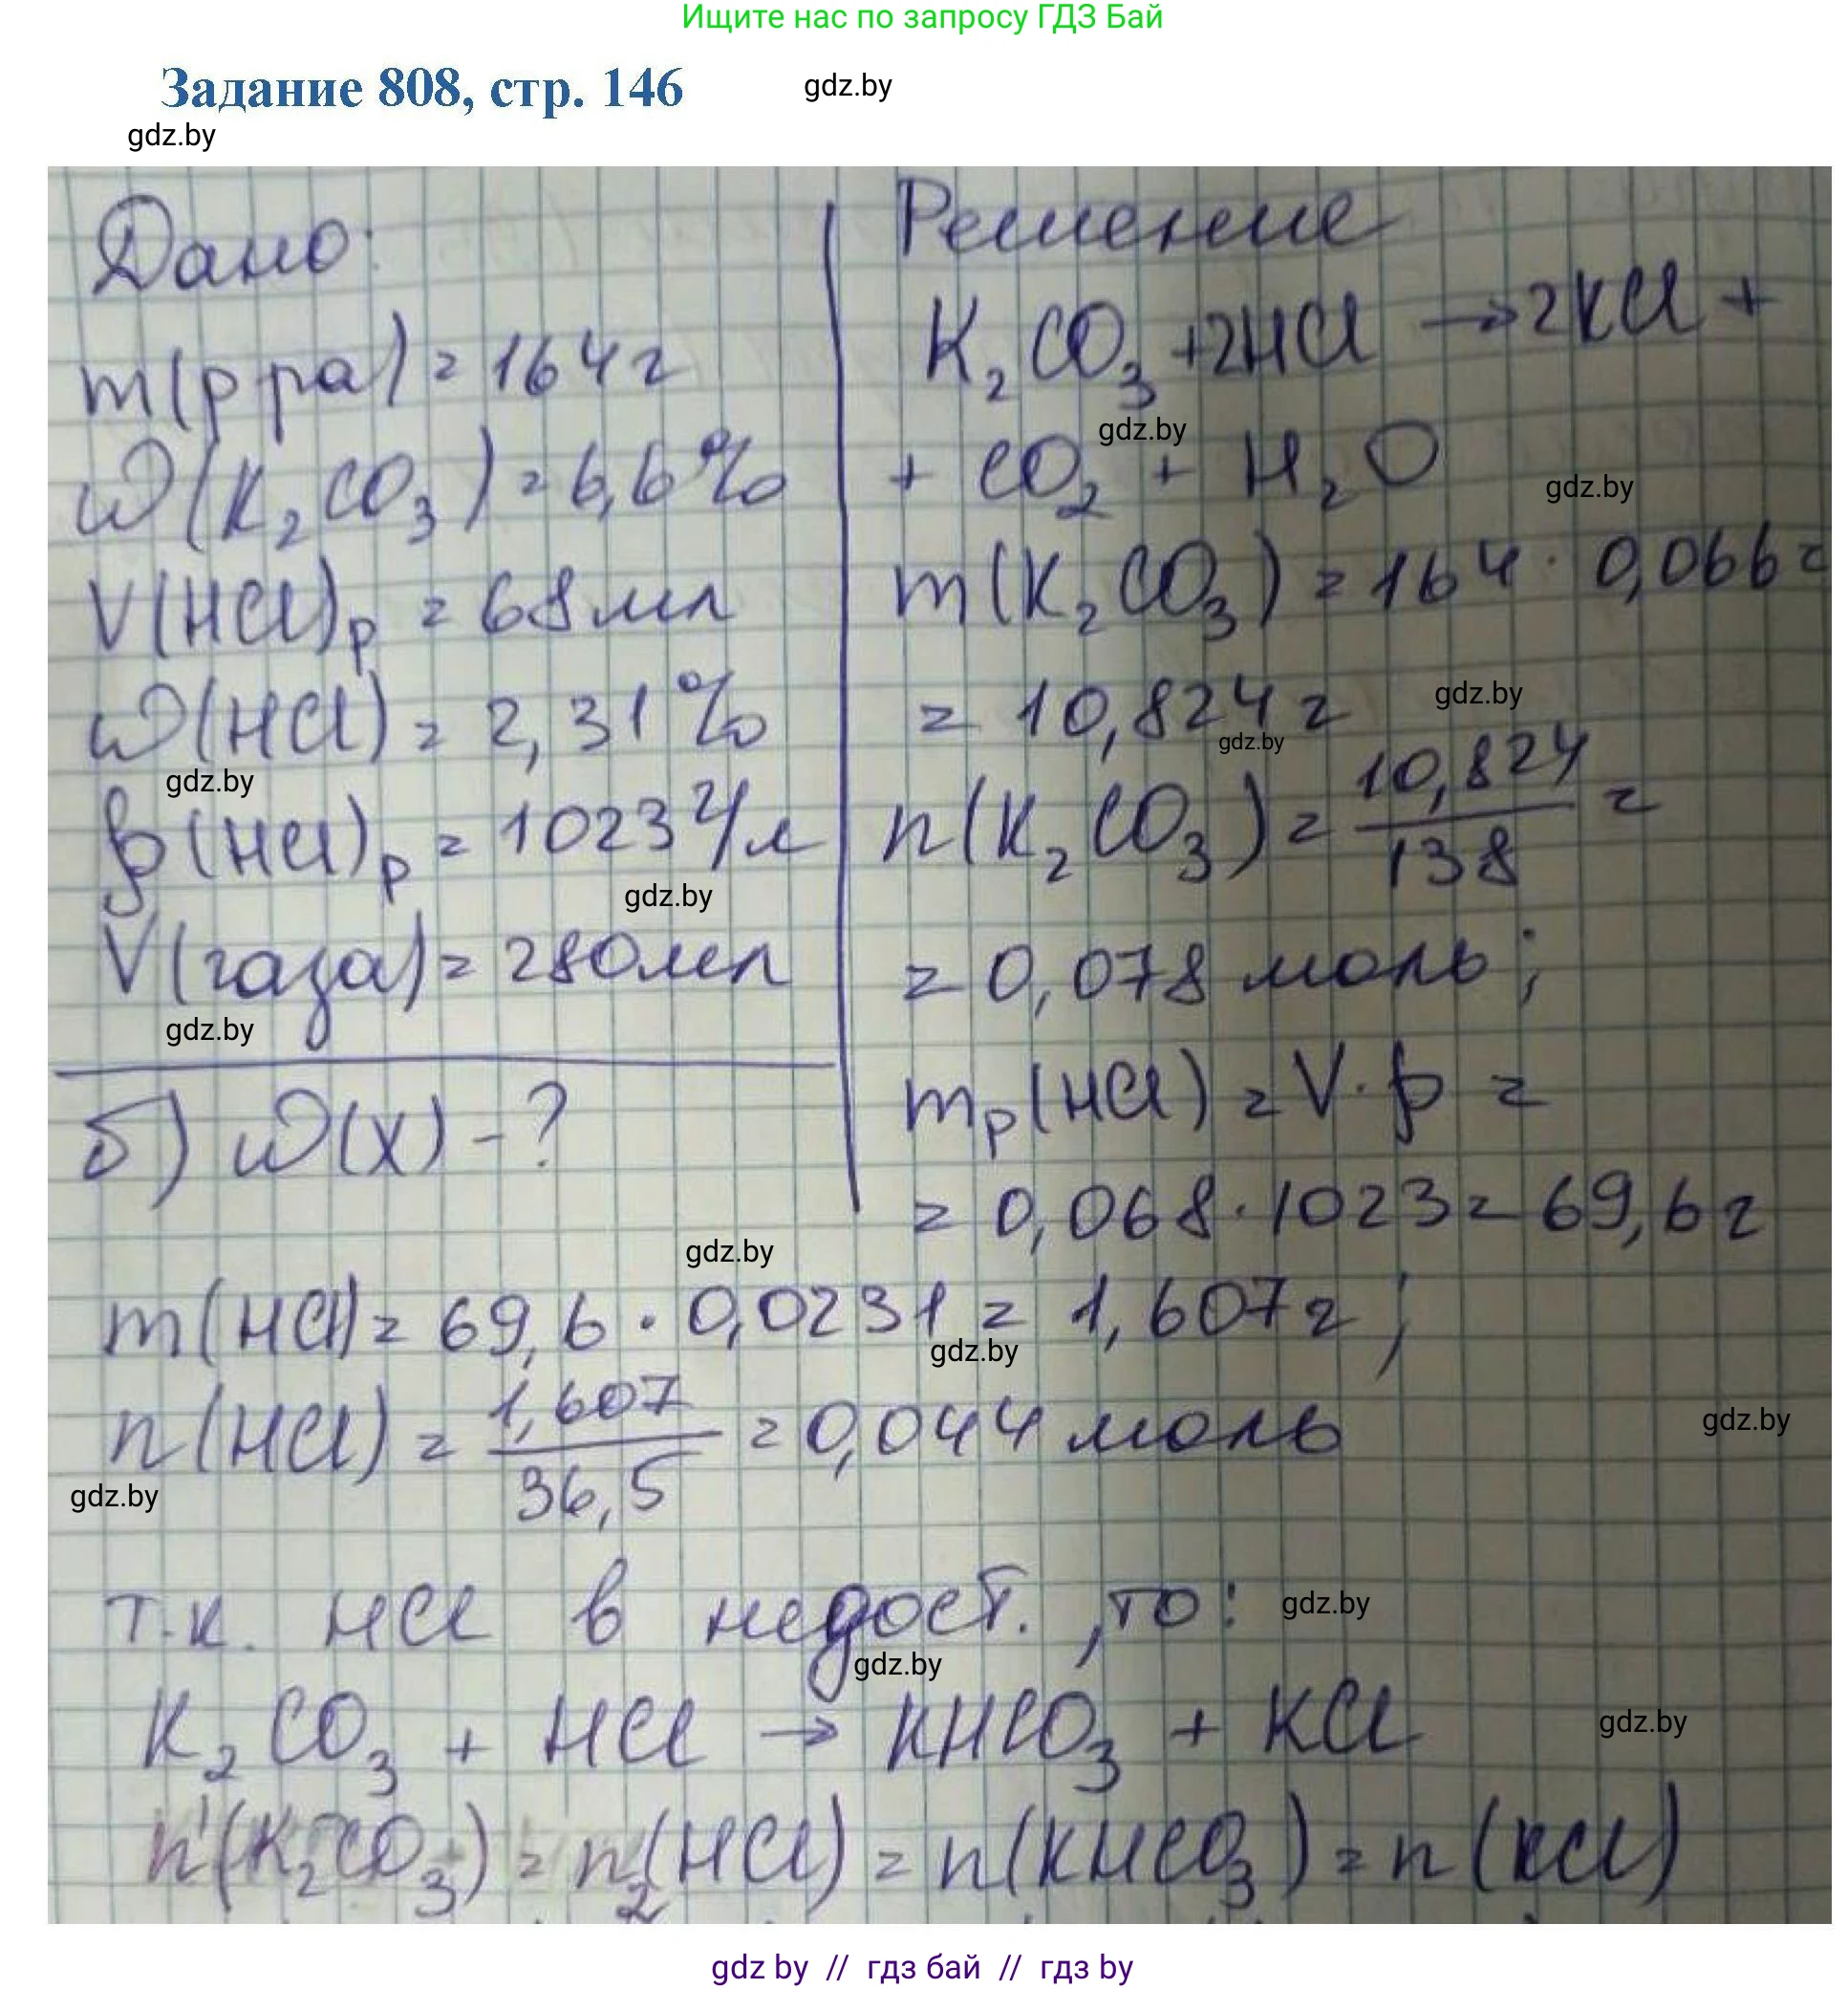 Ищите нас по запросу ГДЗ Бай
Задание 808, стр. 146
gdz.by
gdz.by
Дано:
m(р ра) = 164 г
ω(K₂CO₃) = 6,6%
V(HCl)р = 68 мл
ω(HCl) = 2,31%
gdz.by
ρ(HCl)р = 1023 г/л
gdz.by
V(газа) = 280 мл
gdz.by
б) ω(X) - ?
Решение
K₂CO₃ + 2HCl → 2KCl +
gdz.by
+ CO₂ + H₂O
gdz.by
m(K₂CO₃) = 164 · 0,066 =
= 10,824 г
gdz.by
gdz.by
n(K₂CO₃) = 10,824/138 =
= 0,078 моль;
mр(HCl) = V · ρ =
= 0,068 · 1023 = 69,6 г
gdz.by
m(HCl) = 69,6 · 0,0231 = 1,607 г;
gdz.by
n(HCl) = 1,607/36,5 = 0,044 моль
gdz.by
gdz.by
т.к. HCl в недост. , то:
gdz.by
gdz.by
K₂CO₃ + HCl → KHCO₃ + KCl
gdz.by
n¹(K₂CO₃) = n₂(HCl) = n(KHCO₃) = n(KCl)
gdz by // гдз бай // гдз by